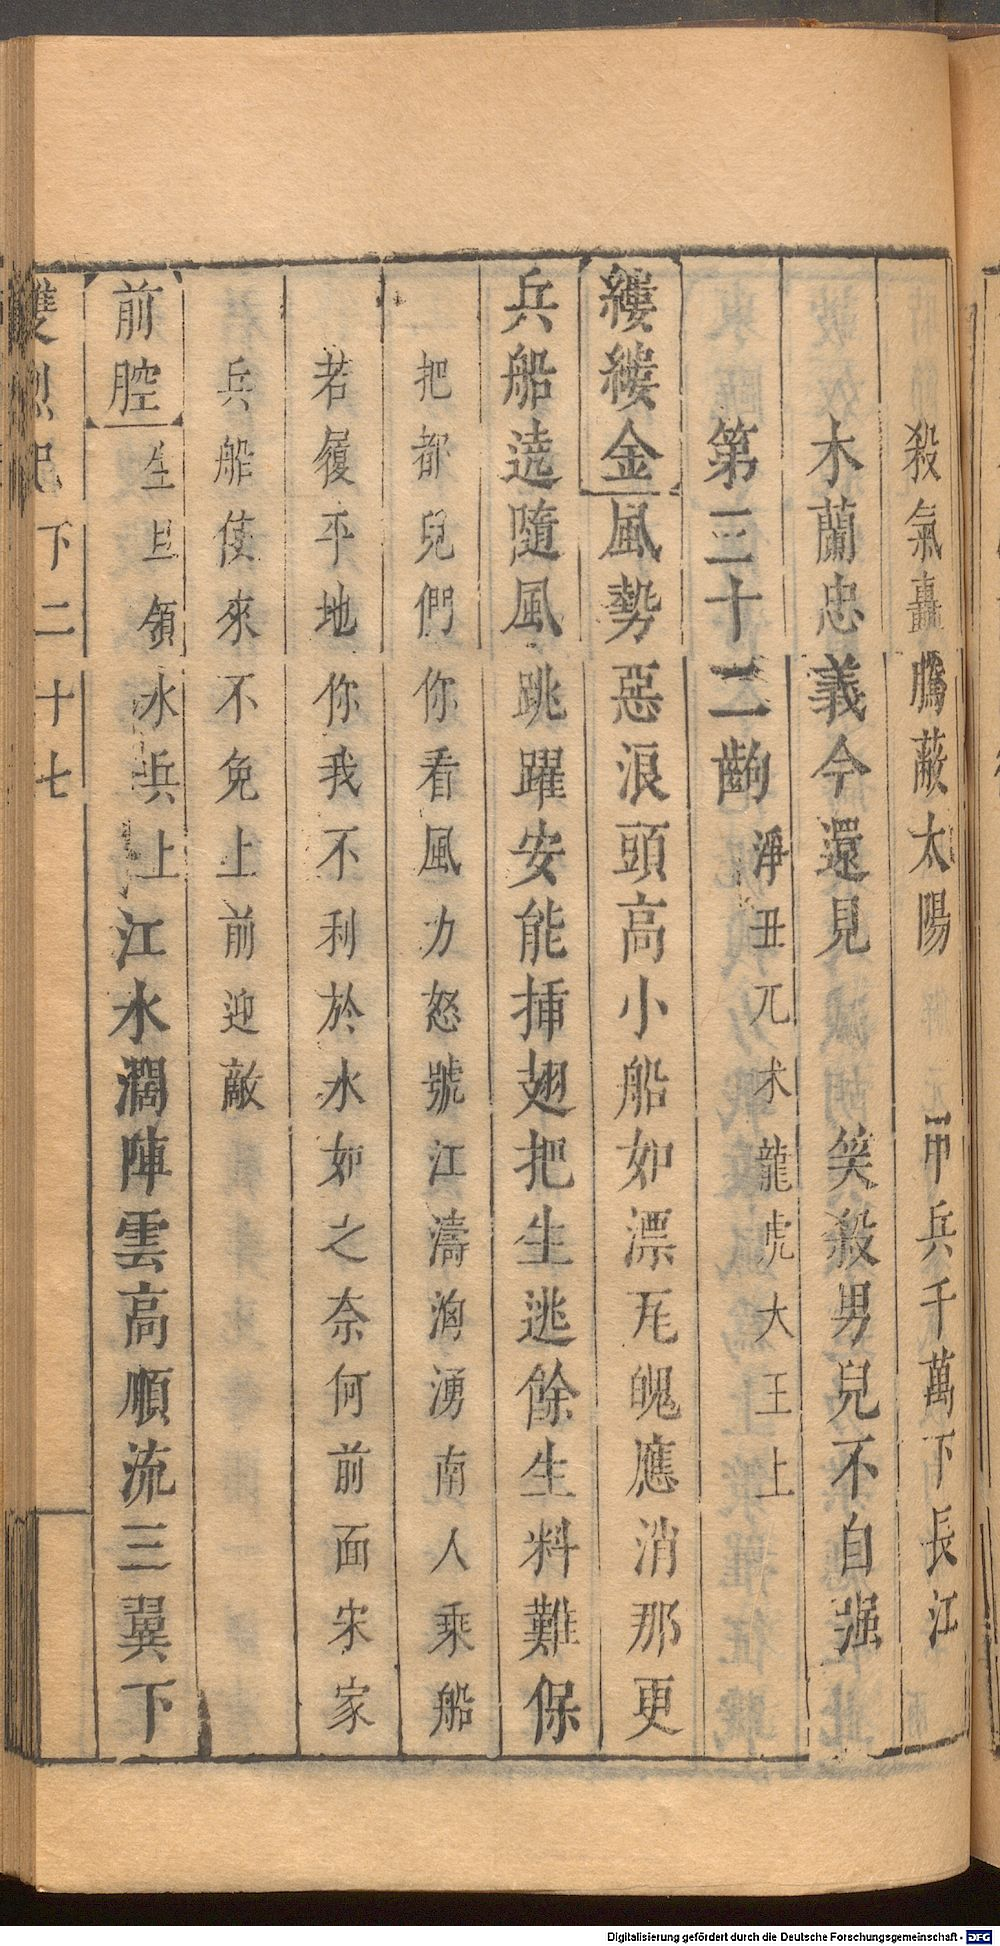 殺氣轟騰蔽太陽 甲兵千萬下長江
木蘭忠義今還見 笑殺男兒不自强
第三十二齣 淨丑兀术龍虎大王上
縷縷金 風勢惡浪頭高小船如漂瓦魄應消那更
兵船遶隨風跳躍安能揷翅把生逃餘生料難保
把都兒們你看風力怒號江濤洶湧南人乘船
若履平地你我不利於水如之奈何前面宋家
兵船使來不免上前迎敵
前腔 生旦領水兵上 江水濶陣雲高順流三翼下
雙烈記 下 二十七
Digitalisierung gefördert durch die Deutsche Forschungsgemeinschaft - DFG